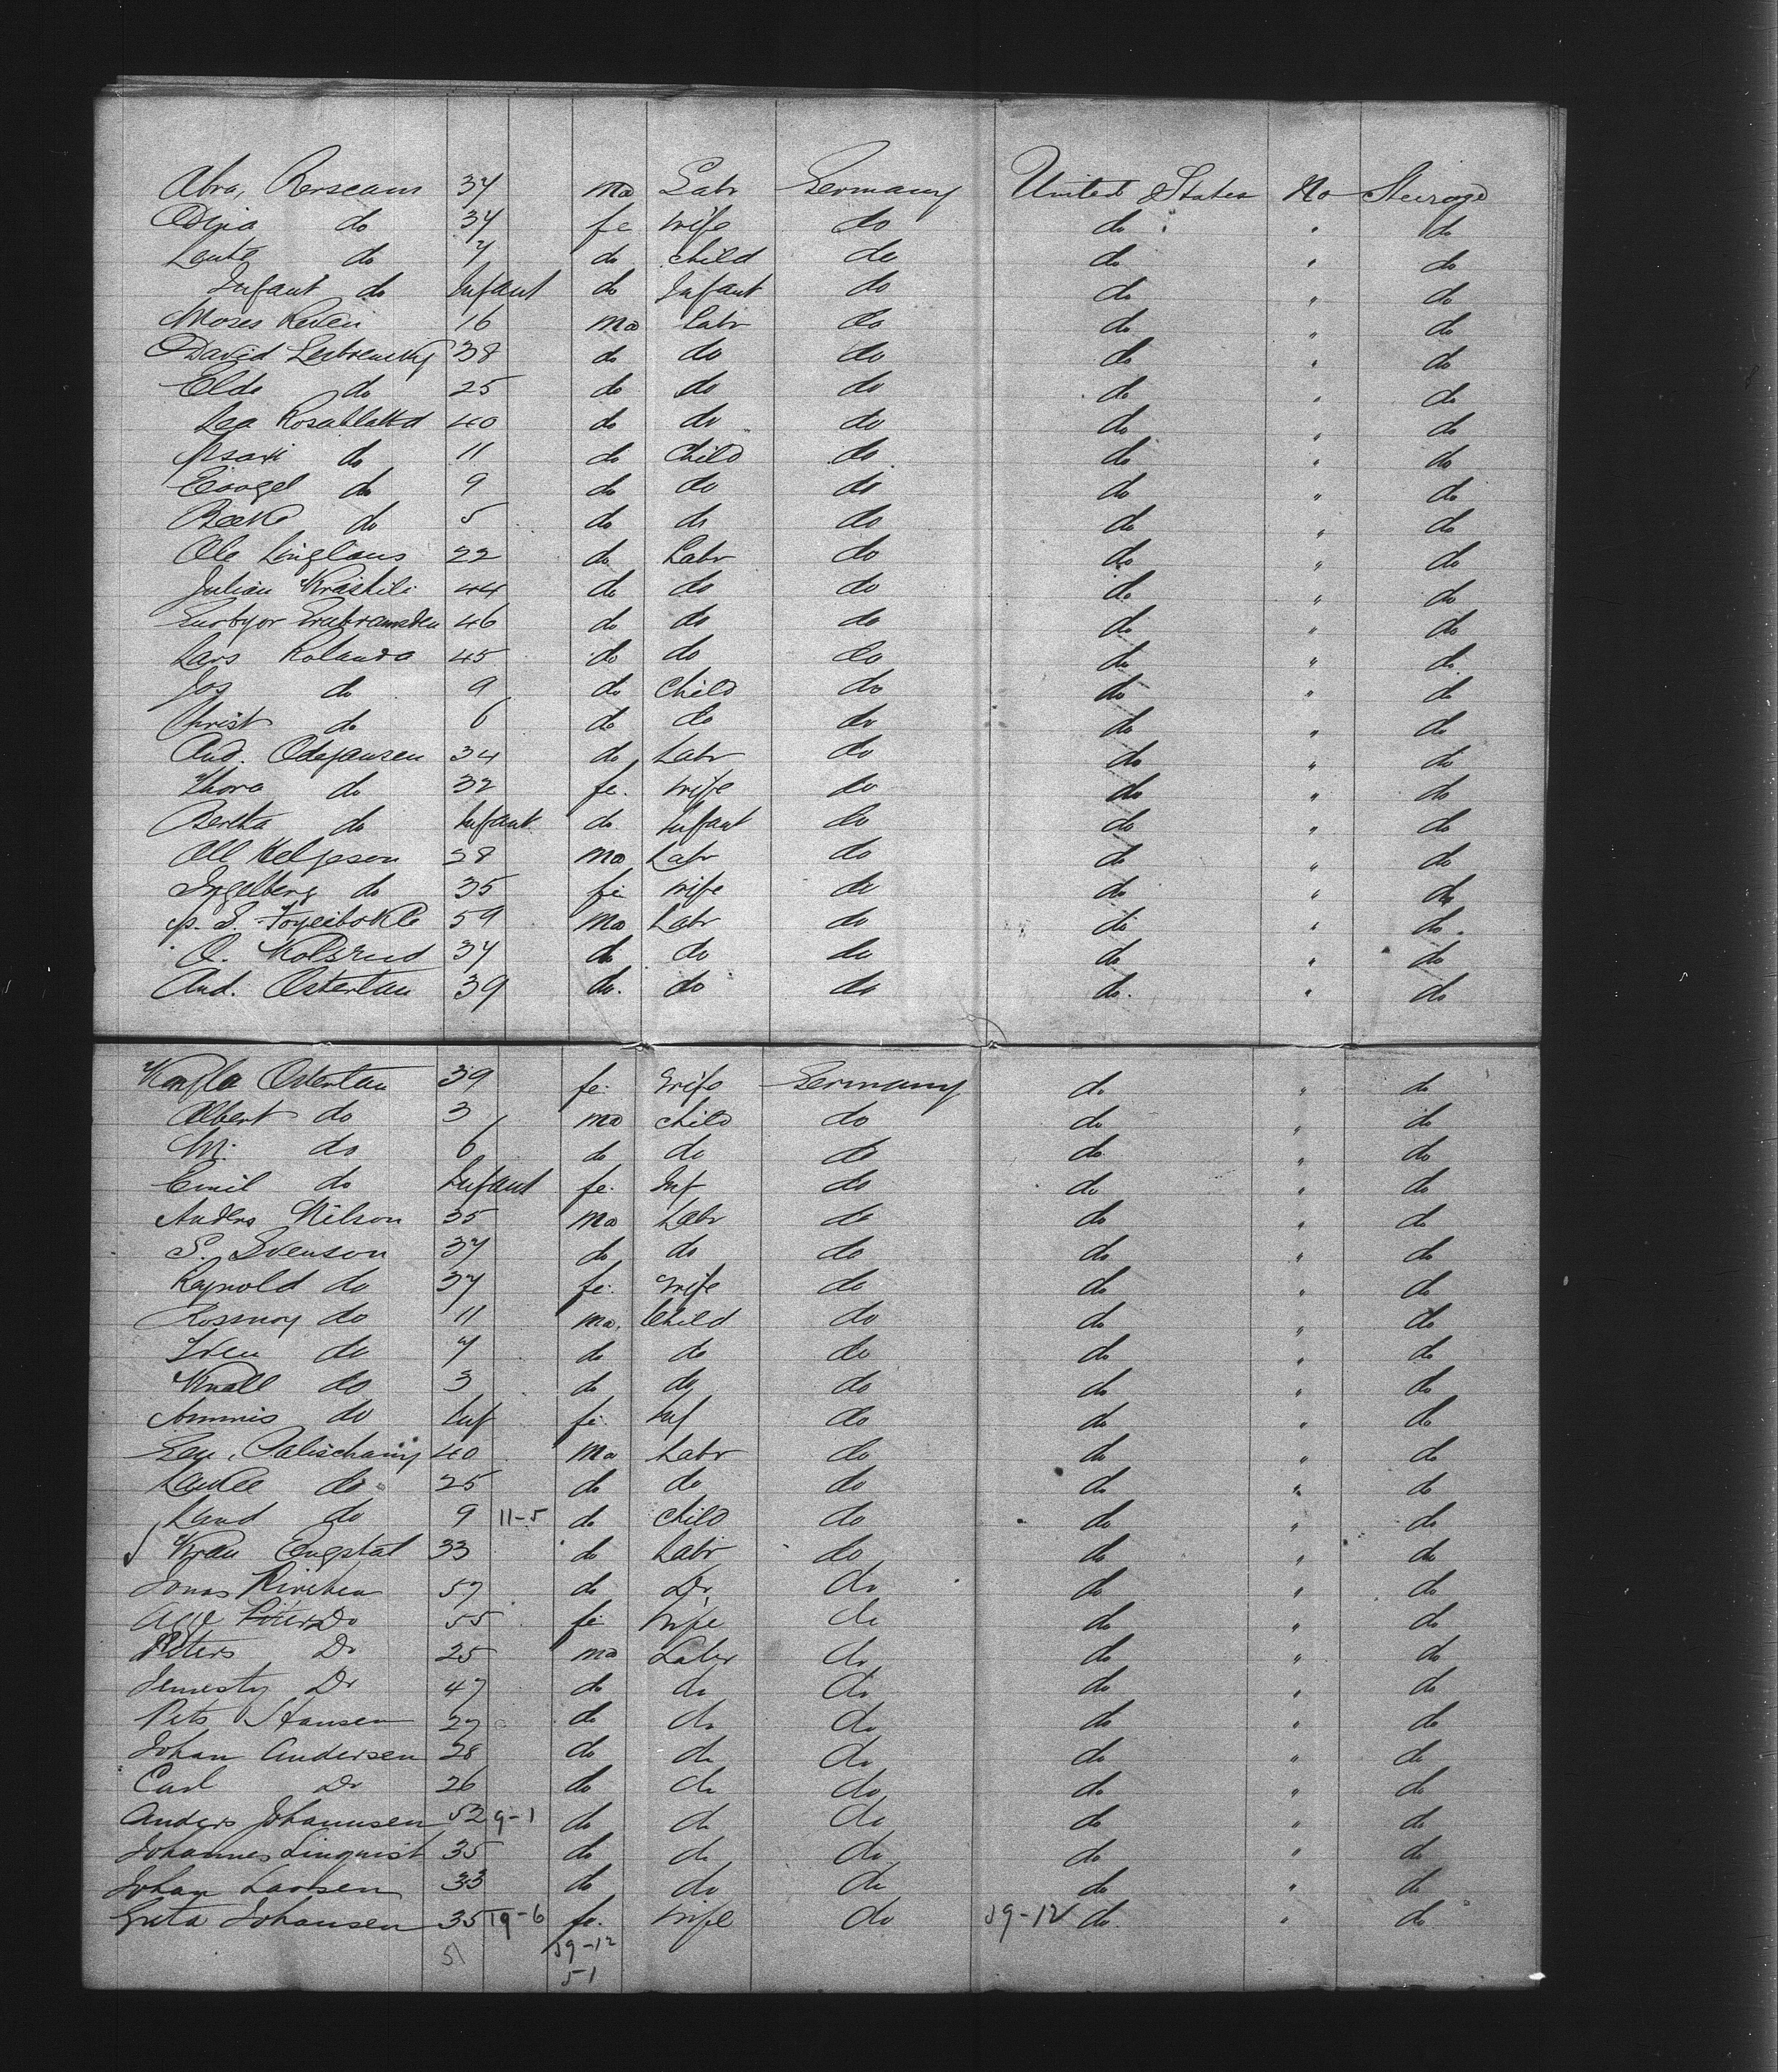 Abra, Rerseam 37 ma Labr Germany United States No Steerage
Dina do 34 fe wife do do " do
Leute do 7 do child do do " do
Infant do Infant do Infant do do " do
Moses 16 ma Labr do do " do
David 38 do do do do " do
Elde do 25 do do do do " do
Lea Rosablattd 40 do do do do " do
do 11 do Child do do " do
do 9 do do do do " do
Beeke do 5 do do do do " do
Ole Linglaus 22 do Labr do do " do
Julian 44 do do do do " do
46 do do do do " do
Lars Rolando 45 do do do do " do
Jos do 9 do Child do do " do
Christ do 6 do do do do " do
And. Odejansen 34 do Labr do do " do
Thora do 32 fe. wife do do " do
Bertha do Infant do Infant do do " do
Oll Helgeson 38 ma Labr do do " do
Ingelberg do 35 fe wife do do " do
59 ma Labr do do " do
O. Kolsrud 37 do do do do " do
And. Ostertau 39 do. do do do. " do
Ostertau 39 fe. wife Germany do " do
Albert do 3 ma child do do " do
M. do 6 do do do do " do
Emil do Infant fe. Inf do do " do
Anders Nilson 35 ma Labr do do " do
S. Svenson 37 do do do do " do
Reynold do 37 fe. wife do do " do
Rossnoy do 11 ma. Child do do " do
Iven do 7 do do do do " do
Knall do 3 do do do do " do
Ammis do Inf fe. Inf do do " do
40 ma Labr do do " do
do 25 do do do do " do
Lund do 9 11-5 do child do do " do
Engstat 33 do Labr do do " do
Jonas 57 do Do do do " do
Do 55 fe wife do do " do
Peters Do 25 ma Labr do do " do
Do 47 do do do do " do
Pets Hansen 27 do do do do " do
Johan Andersen 28 do do do do " do
Carl Do 26 do do do do " do
Anders Johannsen 52 9-1 do do do do " do
Johannes Linquist 35 do do do do " do
Johan Larsen 33 do do do do " do
Greta Johansen 35 19-6 fe. wife do 39-12 do " do
51 39-12
51